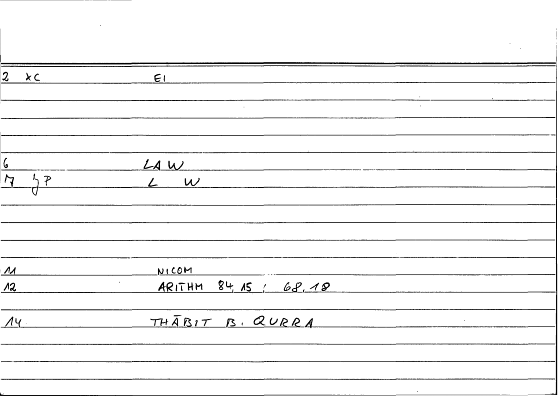 2 XC EI
6 LAW
7 L W
11 NICOM
12 ARITHM 84,15 ; 68.18
14 THĀBIT B. QURRA